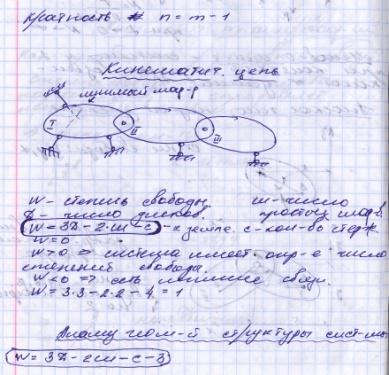 кратность n = m - 1
Кинематич. цепь
I
II
III
W - степень свободы, ш - число
Д - число дисков. простых шарн.
W = 3Д - 2·ш - с - к земле. с - кол-во стерж.
W = 0
W > 0 => система имеет опр-е число
степеней свободы.
W < 0 => есть лишние связи.
W = 3·3 - 2·2 - 4 = 1
Анализ геом-й структуры сист-мы
W = 3Д - 2ш - с - 3